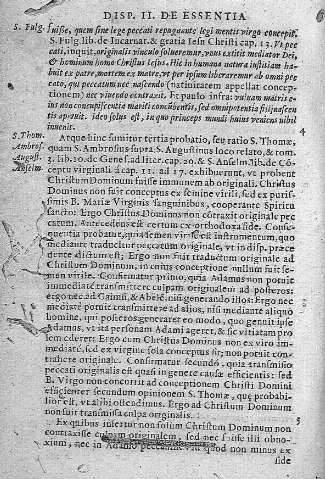 DISP. II. DE ESSENTIA
S. Fulg. fuisse, quem sine lege peccati repugnante legi mentis virgo concepit.
S. Fulg. lib. de Incarnat. & gratia Iesu Christi cap. 13. Vt pec
cati, inquit, originalis vinculo solueremur, vnus extitit mediator Dei,
& hominum homo Christus Iesus. Hic in humana natura iustitiam ha-
buit ex patre, mortem ex matre, vt per ipsum liberaremur ab omni pec
cato, qui peccatum nec nascendo (natiuitatem appellat concep-
tionem) nec viuendo contraxit. Et paulo infra:
nus non concupiscentia mariti
aperuit. ideo solus est, in quo princeps mundi huius veniens nihil
inuenit.
4
S. Thom.
Ambros.
August.
Anselm.
Atque hinc sumitur tertia probatio, seu ratio S. Thomæ,
quam S. Ambrosius supra S. Augustinus loco relato, & tom.
3. lib. 10. de Genes. ad liter. cap. 20. & S. Anselm. lib. de Cō
ceptu virginali à cap. 11. ad 17. exhibuerunt, vt probent
Christum Dominum fuisse immunem ab originali. Christus
Dominus non fuit conceptus ex semine virili, sed ex puris-
simis B. Mariæ Virginis sanguinibus, cooperante Spiritu
sancto. Ergo Christus Dominus nō cōtraxit originale pec
catum. Antecedens est certum ex orthodoxa fide. Conse-
quentia probatur, quia semen virile est instrumentum, quo
mediante traducitur peccatum originale, vt in disp. præce
dente dictum est; Ergo non fuit traductum originale ad
Christum Dominum, in cuius conceptione nullum fuit se-
men virile. Confirmatur primo, quia Adamus non potuit
immediatè transmittere culpam originalem ad posteros:
ergo nec ad Cainū, & Abelē, nisi generando illos: Ergo nec
mediatè potuit transmittere ad alios, nisi mediante aliquo
homine, qui posteros generaret eo modo, quo genuit ipse
Adamus, vt ita personam Adami ageret, & sic vitiatam pro
lem ederet: Ergo cum Christus Dominus non ex viro im-
mediatè, sed ex virgine sola conceptus sit; non potuit con-
trahere originale. Confirmatur secundò, quia transmissio
peccati originalis est quasi in genere causæ efficientis: sed
B. Virgo non concurrit ad conceptionem Christi Domini
efficienter secundum opinionem S. Thomæ, quę probabi-
lior est, vt alibi ostendimus. Ergo ad Christum Dominum
non fuit transmissa culpa originalis.
5
Ex quibus infertur non solum Christum Dominum non
contraxisse culpam originalem, sed nec fuisse illi obno-
xium, nec in Adamo peccauisse quod non minus ex
fide